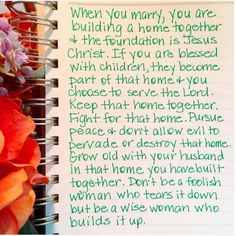 When you marry, you are
building a home together
& the foundation is Jesus
Christ. If you are blessed
with children, they become
part of that home & you
choose to serve the Lord.
Keep that home together.
Fight for that home. Pursue
peace & don't allow evil to
pervade or destroy that home.
Grow old with your husband
in that home you have built
together. Don't be a foolish
woman who tears it down
but be a wise woman who
builds it up.